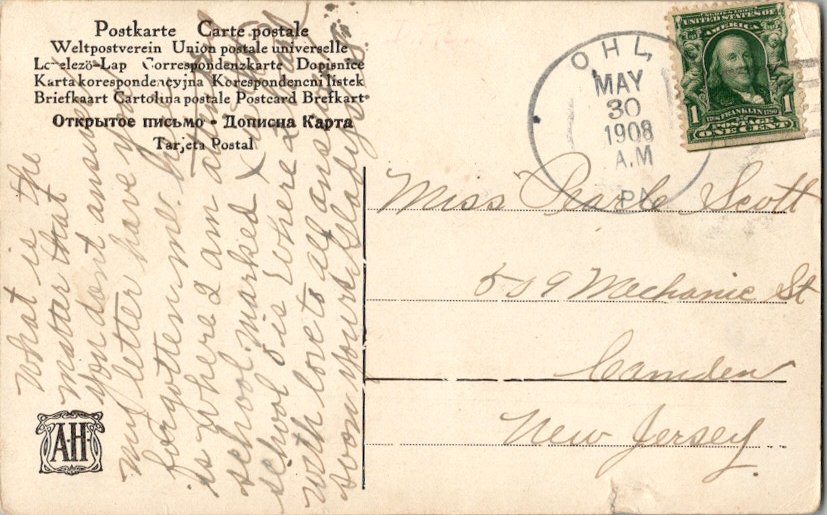 Postkarte Carte postale
Weltpostverein Union postale universelle
Levelező-Lap Correspondenzkarte Dopisnice
Karta korespondencyjna Korespondencni listek
Briefkaart Cartolina postale Postcard Brefkort
Открытое письмо - Дописна Карта
Tarjeta Postal
OHL,
MAY
30
1908
A.M
PA.
UNITED STATES OF
AMERICA
1 FRANKLIN 1
POSTAGE
ONE CENT
Miss Pearle Scott
509 Mechanic St
Camden
New Jersey.
What is the
matter that
you dont answer
my letter have you
forgotten me.
is where I am at
school marked X
school & is where I
with love to all ans
soon yours Gladys
AH